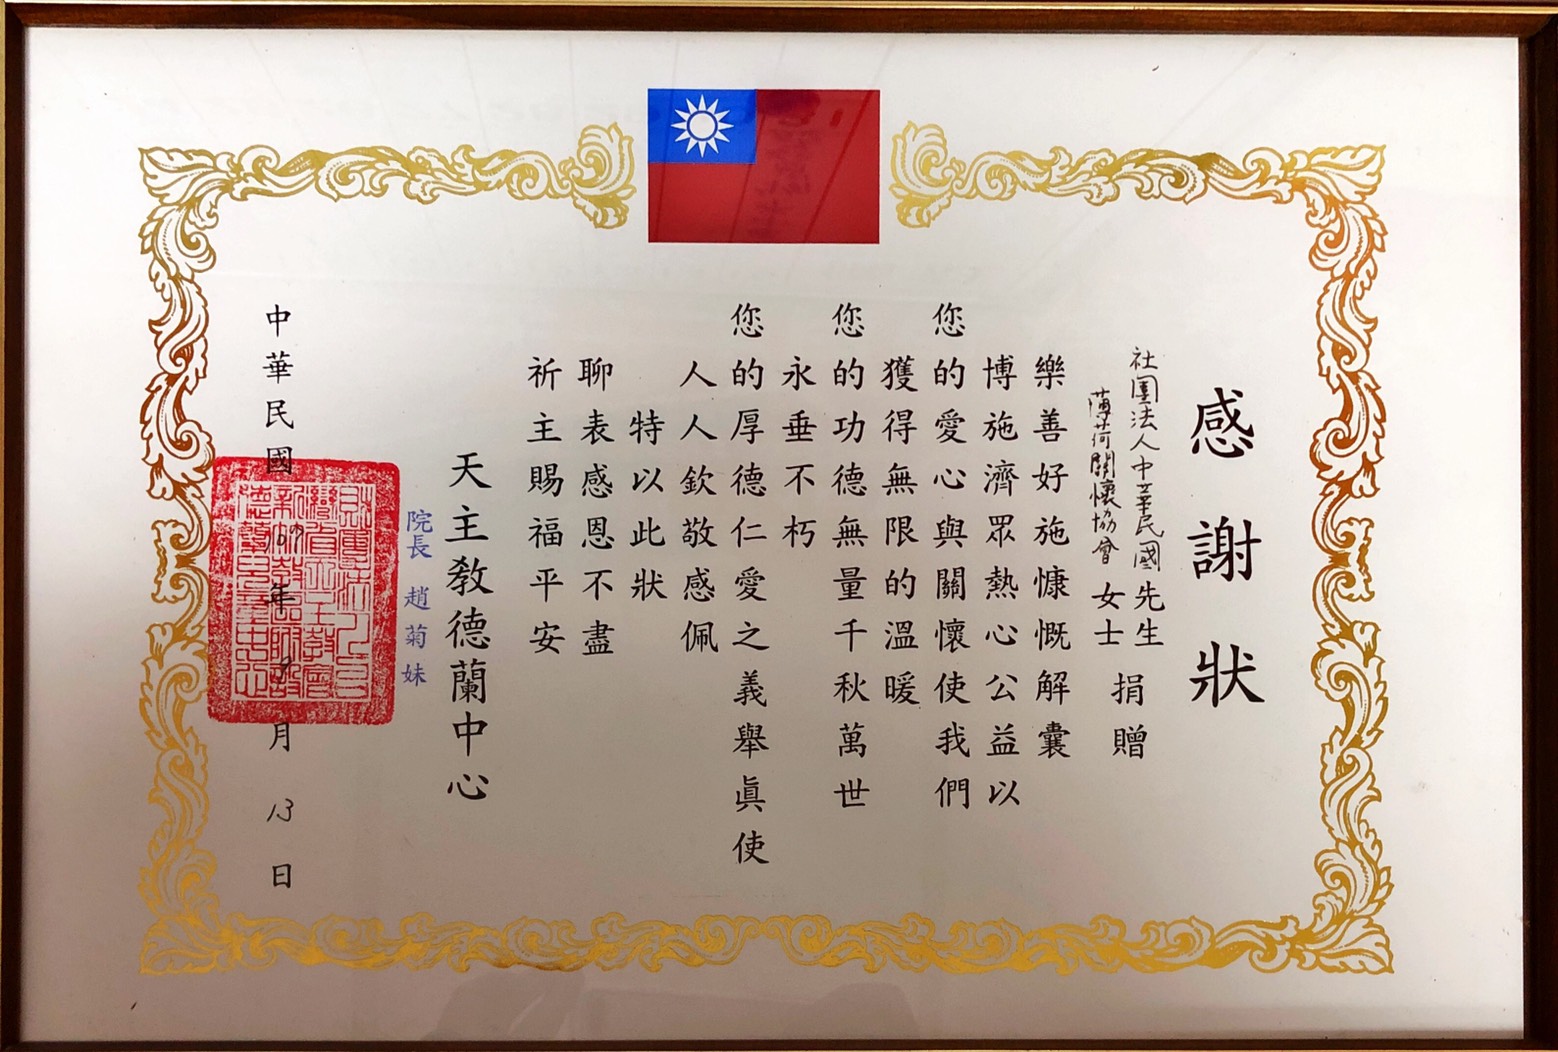 感謝狀
社團法人中華民國
薄荷關懷協會
先生
女士
捐贈
樂善好施慷慨解囊
博施濟眾熱心公益以
您的愛心與關懷使我們
獲得無限的溫暖
您的功德無量千秋萬世
永垂不朽
您的厚德仁愛之義舉眞使
人人欽敬感佩
特以此狀
聊表感恩不盡
祈主賜福平安
天主教德蘭中心
院長 趙菊妹
中華民國 年 月 13 日